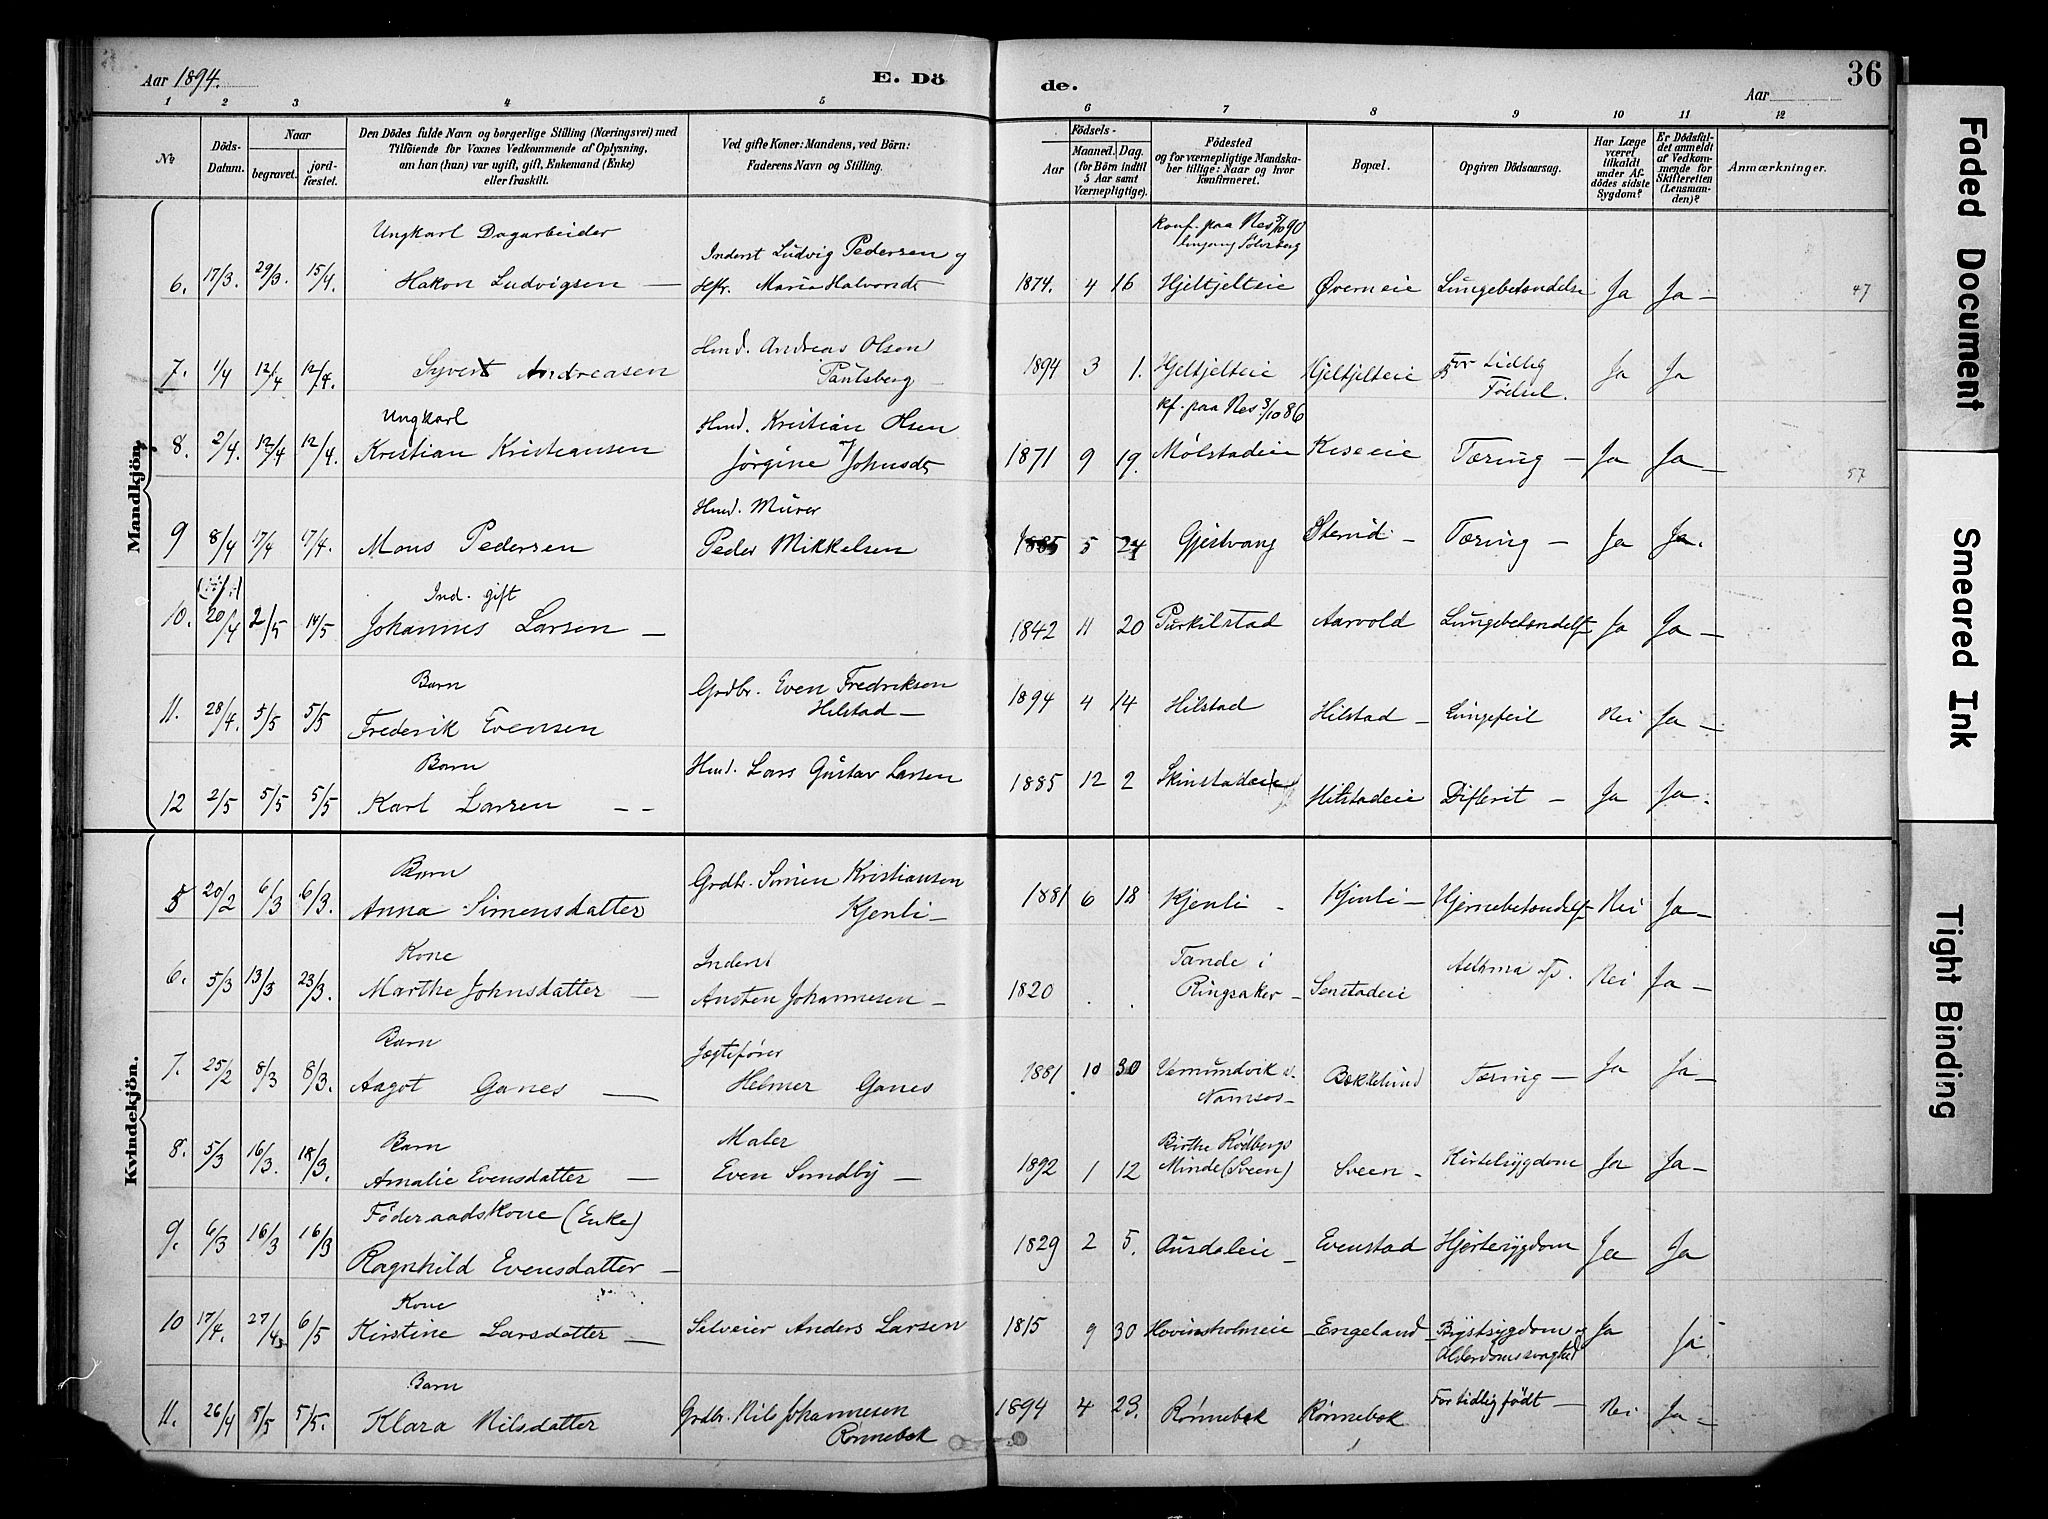 Aar 1894. E. Dö de. Aar 36
1 2 3 4 5 6 7 8 9 10 11 12
No
Döds-Datum.
Naar
begravet.
jordfæstet.
Den Dödes fulde Navn og borgerlige Stilling (Næringsvei) med
Tilföiende for Voxnes Vedkommende af Oplysning,
om han (hun) var ugift, gift, Enkemand (Enke)
eller fraskilt.
Ved gifte Koner: Mandens, ved Börn:
Faderens Navn og Stilling.
Födsels-
Aar
Maaned. Dag.
(for Börn indtil
5 Aar samt
Værnepligtige).
Födested
og for værnepligtige Mandska-
ber tillige: Naar og hvor
konfirmeret.
Bopæl.
Opgiven Dödsaarsag.
Har Læge
været
tilkaldt
under Af-
dödes sidste
Sygdom?
Er Dödsfal-
det anmeldt
af Vedkom-
mende for
Skifteretten
(Lensman-
den)?
Anmærkninger.
Mandkjön.
Ungkarl Dagarbeider konf. paa Nes 5/10 90
6. 17/3. 29/3. 15/4. Hakon Ludvigsen — Inderst Ludvig Pedersen og
Hfr. Maria Halvorsdt 1874. 4 16 Hjeltjelteie Øverneie Lungebetændelse Ja Ja — 47
7. 1/4 12/4 12/4. Syvert Andreasen Hmd. Andreas Olsen
Paulsberg — 1894 3 1. Hjeltjelteie Hjeltjelteie For tidlig
Fødsel. Ja Ja
Ungkarl kf. paa Nes 3/10 86
8. 2/4. 12/4 12/4. Kristian Kristiansen Hmd. Kristian Olsen
Jørgine Johnsdt 1871 9 19. Mølstadeie Kiseeie Tæring — Ja Ja — 57
9 8/4 17/4 17/4. Mons Pedersen Hmd. Murer
Peder Mikkelsen 1885 5 24 Gjestvang Stenid — Tæring — Ja Ja.
Ind. gift
10. 20/4 2/5 14/5 Johannes Larsen — 1842 11 20 Purkilstad Aarvold Lungebetændelse Ja Ja —
Barn
11. 28/4. 5/5 5/5 Frederik Evensen Grdbr. Even Fredriksen
Hilstad — 1894 4 14 Hilstad Hilstad — Lungefeil Nei Ja —
Barn
12 2/5 5/5 5/5 Karl Larsen — — Hmd. Lars Gustav Larsen 1885 12 2 Skinstadeie Hilstadeie Difterit — Ja Ja.
Kvindekjön.
Barn
5 20/2 6/3 6/3. Anna Simensdatter Grdbr. Simen Kristiansen
Kjenli — 1881 6 18 Kjenli — Kjenli — Hjernebetændelse Nei Ja —
Kone
6. 5/3 13/3 23/3. Marthe Johnsdatter — Inderst
Austen Johannesen — 1820 . . Tande i
Ringsaker — Senstadeie Asthma Nei Ja —
Barn
7. 25/2 8/3 8/3. Aagot Ganes — Jægtefører
Helmer Ganes 1881 10 30 Vemundvik v.
Namsos — Bekkelund Tæring — Ja Ja —
Barn
8. 5/3 16/3. 18/3. Amalie Evensdatter — Maler
Even Sundby — 1892 1 12 Birthe Rødbergs
Minde (Sveen) Sveen — Kirtelsygdom Ja Ja —
Føderaadskone (Enke)
9. 6/3 16/3 16/3 Ragnhild Evensdatter — 1829 2 5. Ausdaleie — Evenstad Hjertesygdom Ja Ja
Kone
10 17/4. 27/4 6/5 Kirstine Larsdatter — Selveier Anders Larsen 1815 9 30 Hovinsholmeie — Engeland — Brystsygdom og
Alderdomssvaghed Ja Ja.
Barn
11. 26/4 5/5 5/5. Klara Nilsdatter Grdbr. Nils Johannesen
Rønnebek 1894 4 23. Rønnebek Rønnebek For tidlig født — Nei Ja —
Faded Document
Smeared Ink
Tight Binding